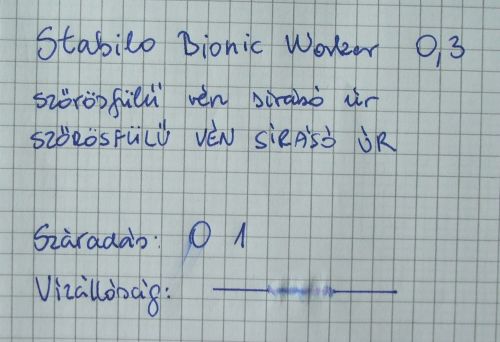 Stabilo Bionic Worker 0,3
szőrösfülű vén sirásó úr
SZŐRÖSFÜLŰ VÉN SÍRÁSÓ ÚR
Száradás: 0 1
Vízállóság: